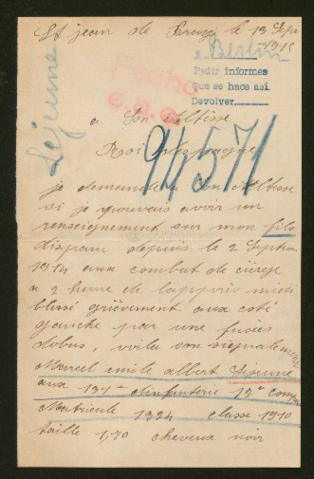 St jean de le 13 Sept
1915
Lejeune
a Berlin
Pedir informes
que se hace asi.
Devolver
Fecho
a Son Altisse
Roi
94571
je demande a Son Altesse
si je pouvais avoir un
renseignement sur mon fils
disparu depuis le 2 Septem
1914 aux combat de
a 2 heure de lapprès midi
blessé grièvement aux coté
gauche par une
dobus, voila son signalement
Marcel emile albert Lejeune
aux dinfanterie 12e Comp
Matricule 1324 classe 1910
taille 1,70 cheveux noir